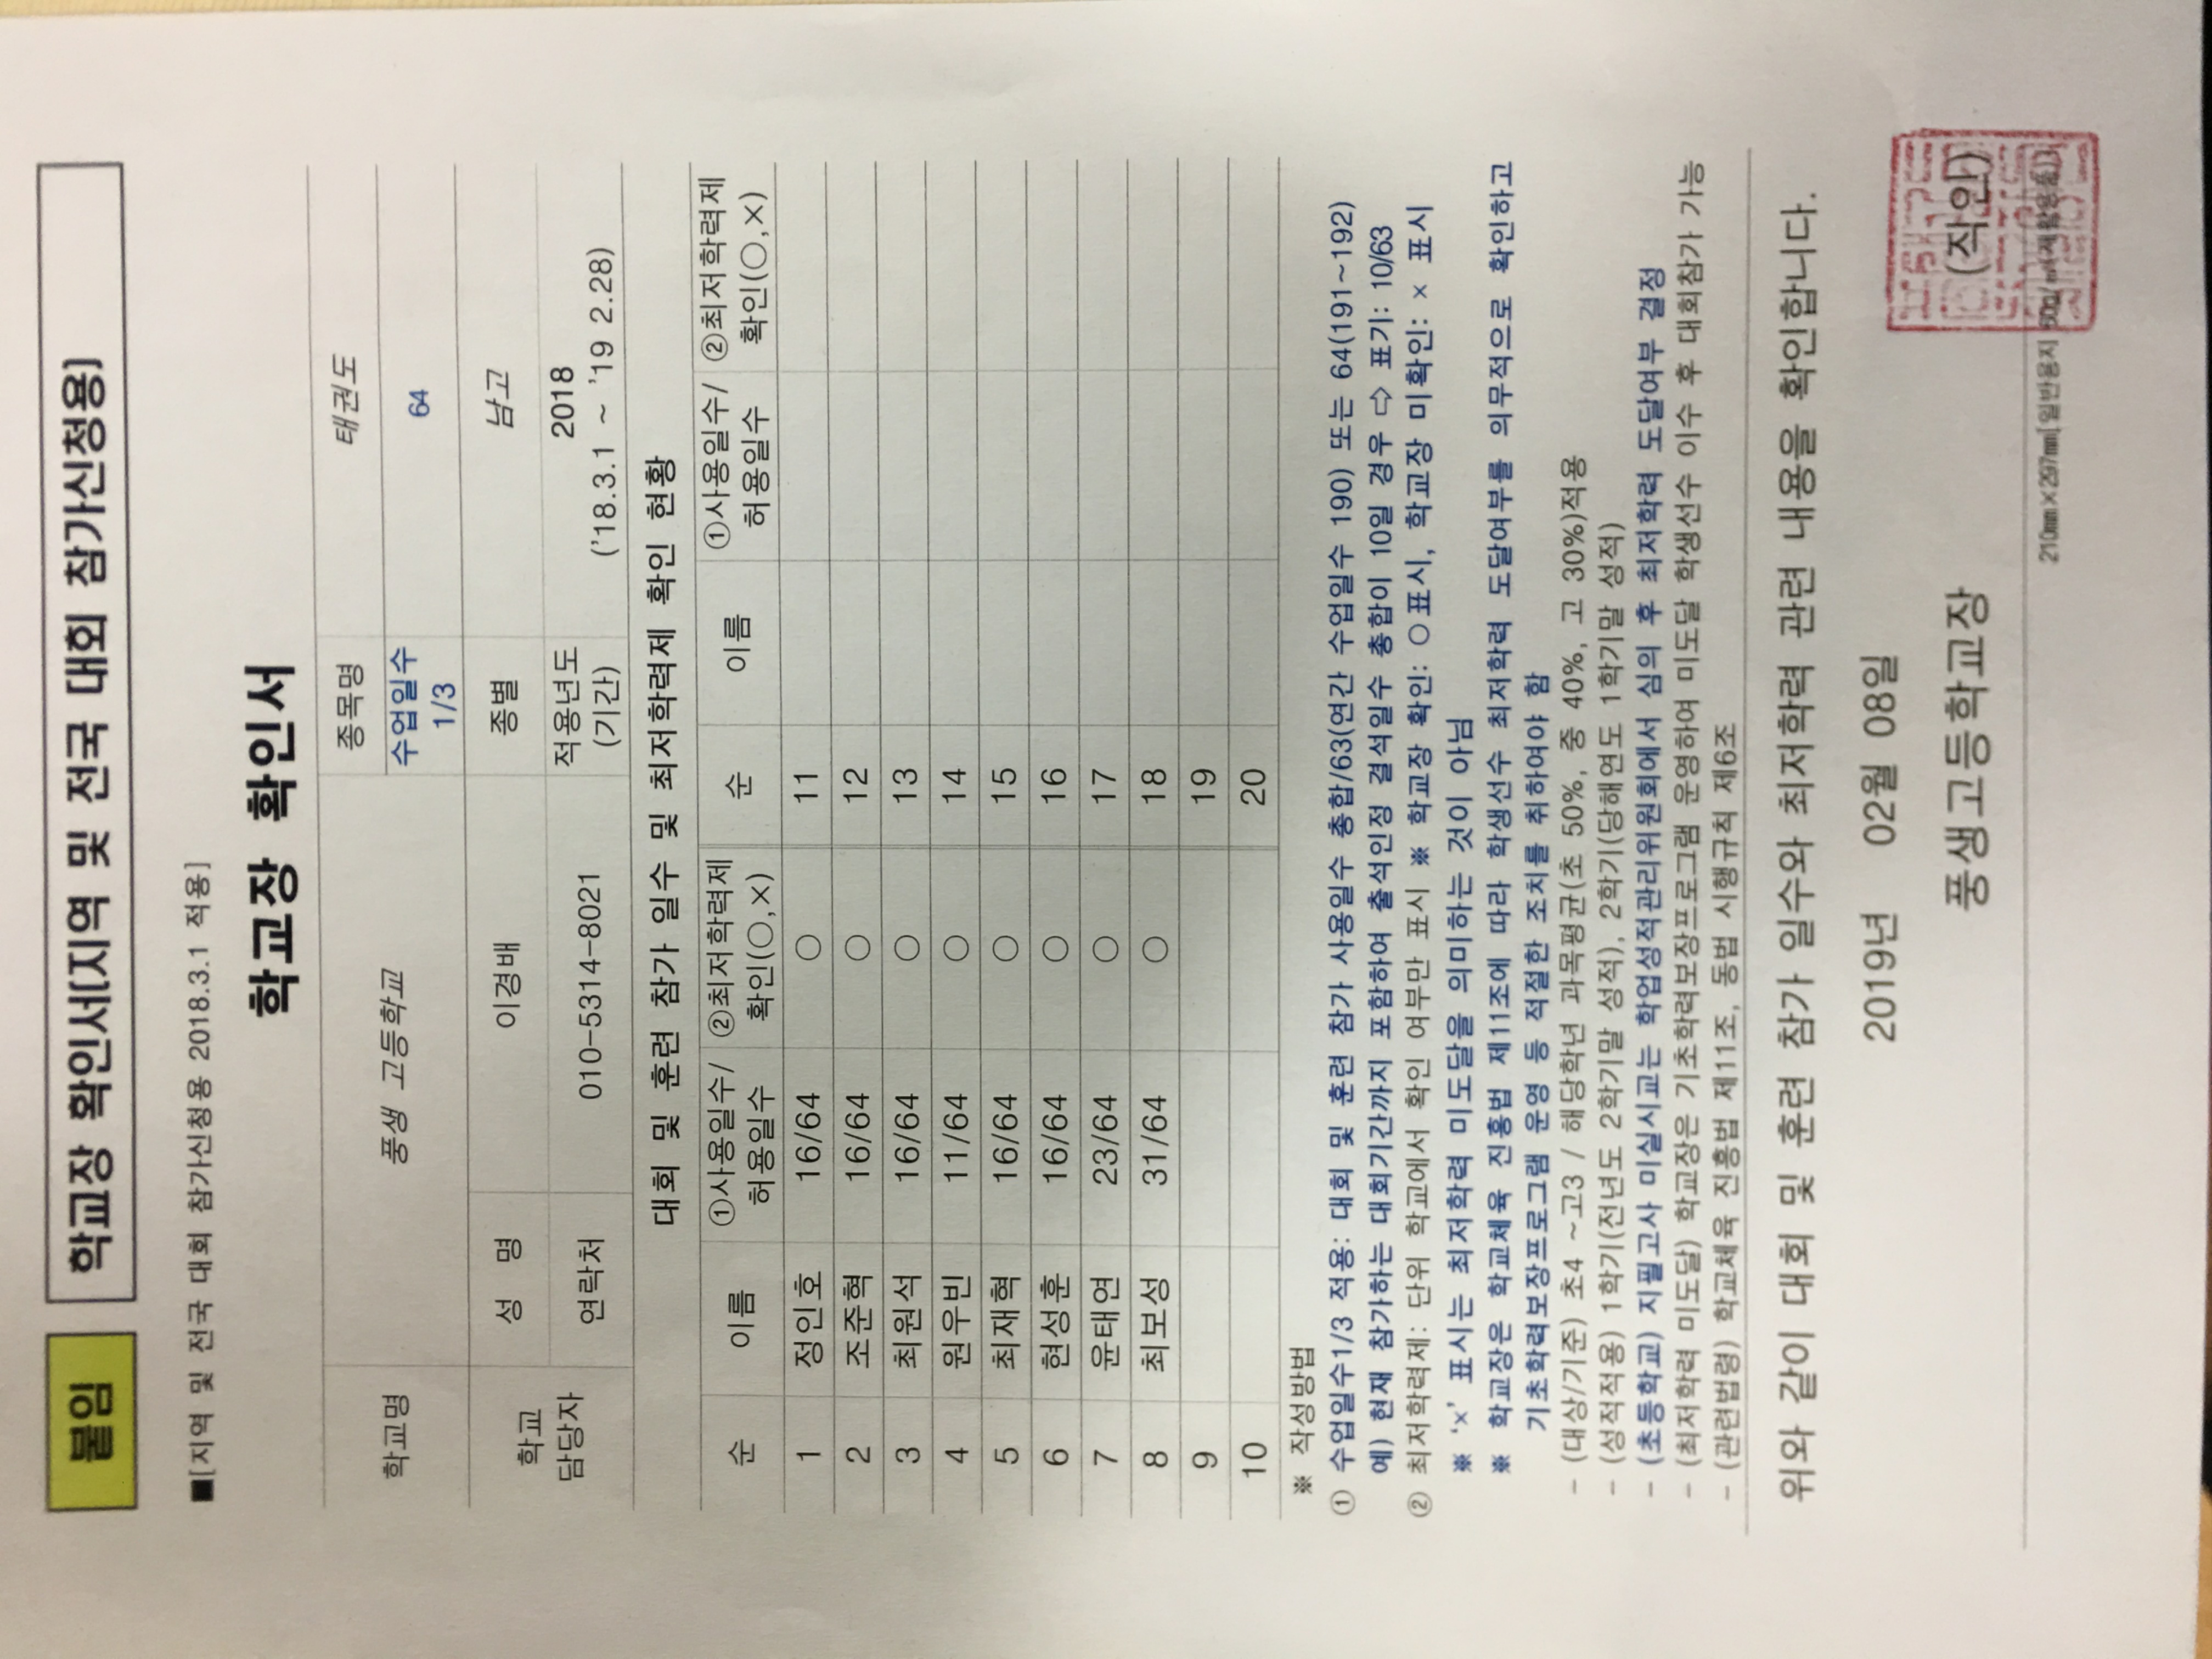 붙임
학교장 확인서(지역 및 전국 대회 참가신청용)
■[지역 및 전국 대회 참가신청용 2018.3.1 적용]
학교장 확인서
학교명 풍생 고등학교 종목명 태권도
수업일수 1/3 64
학교 담당자 성 명 이경배 종별 남고
연락처 010-5314-8021 적용년도 (기간) 2018 ('18.3.1 ~ '19 2.28)
대회 및 훈련 참가 일수 및 최저학력제 확인 현황
순 이름 ①사용일수/허용일수 ②최저학력제 확인(○,×) 순 이름 ①사용일수/허용일수 ②최저학력제 확인(○,×)
1 정인호 16/64 ○ 11
2 조준혁 16/64 ○ 12
3 최원석 16/64 ○ 13
4 원우빈 11/64 ○ 14
5 최재혁 16/64 ○ 15
6 현성훈 16/64 ○ 16
7 윤태연 23/64 ○ 17
8 최보성 31/64 ○ 18
9 19
10 20
※ 작성방법
① 수업일수1/3 적용: 대회 및 훈련 참가 사용일수 총합/63(연간 수업일수 190) 또는 64(191~192)
예) 현재 참가하는 대회기간까지 포함하여 출석인정 결석일수 총합이 10일 경우 ⇨ 표기: 10/63
② 최저학력제: 단위 학교에서 확인 여부만 표시 ※ 학교장 확인: ○표시, 학교장 미확인: × 표시
※ '×' 표시는 최저학력 미도달을 의미하는 것이 아님
※ 학교장은 학교체육 진흥법 제11조에 따라 학생선수 최저학력 도달여부를 의무적으로 확인하고
기초학력보장프로그램 운영 등 적절한 조치를 취하여야 함
- (대상/기준) 초4 ~고3 / 해당학년 과목평균(초 50%, 중 40%, 고 30%)적용
- (성적적용) 1학기(전년도 2학기말 성적), 2학기(당해연도 1학기말 성적)
- (초등학교) 지필고사 미실시교는 학업성적관리위원회에서 심의 후 최저학력 도달여부 결정
- (최저학력 미도달) 학교장은 기초학력보장프로그램 운영하여 미도달 학생선수 이수 후 대회참가 가능
- (관련법령) 학교체육 진흥법 제11조, 동법 시행규칙 제6조
위와 같이 대회 및 훈련 참가 일수와 최저학력 관련 내용을 확인합니다.
2019년 02월 08일
풍생고등학교장 (직인)
210mm×297mm[일반용지 60g/㎡(재활용품)]